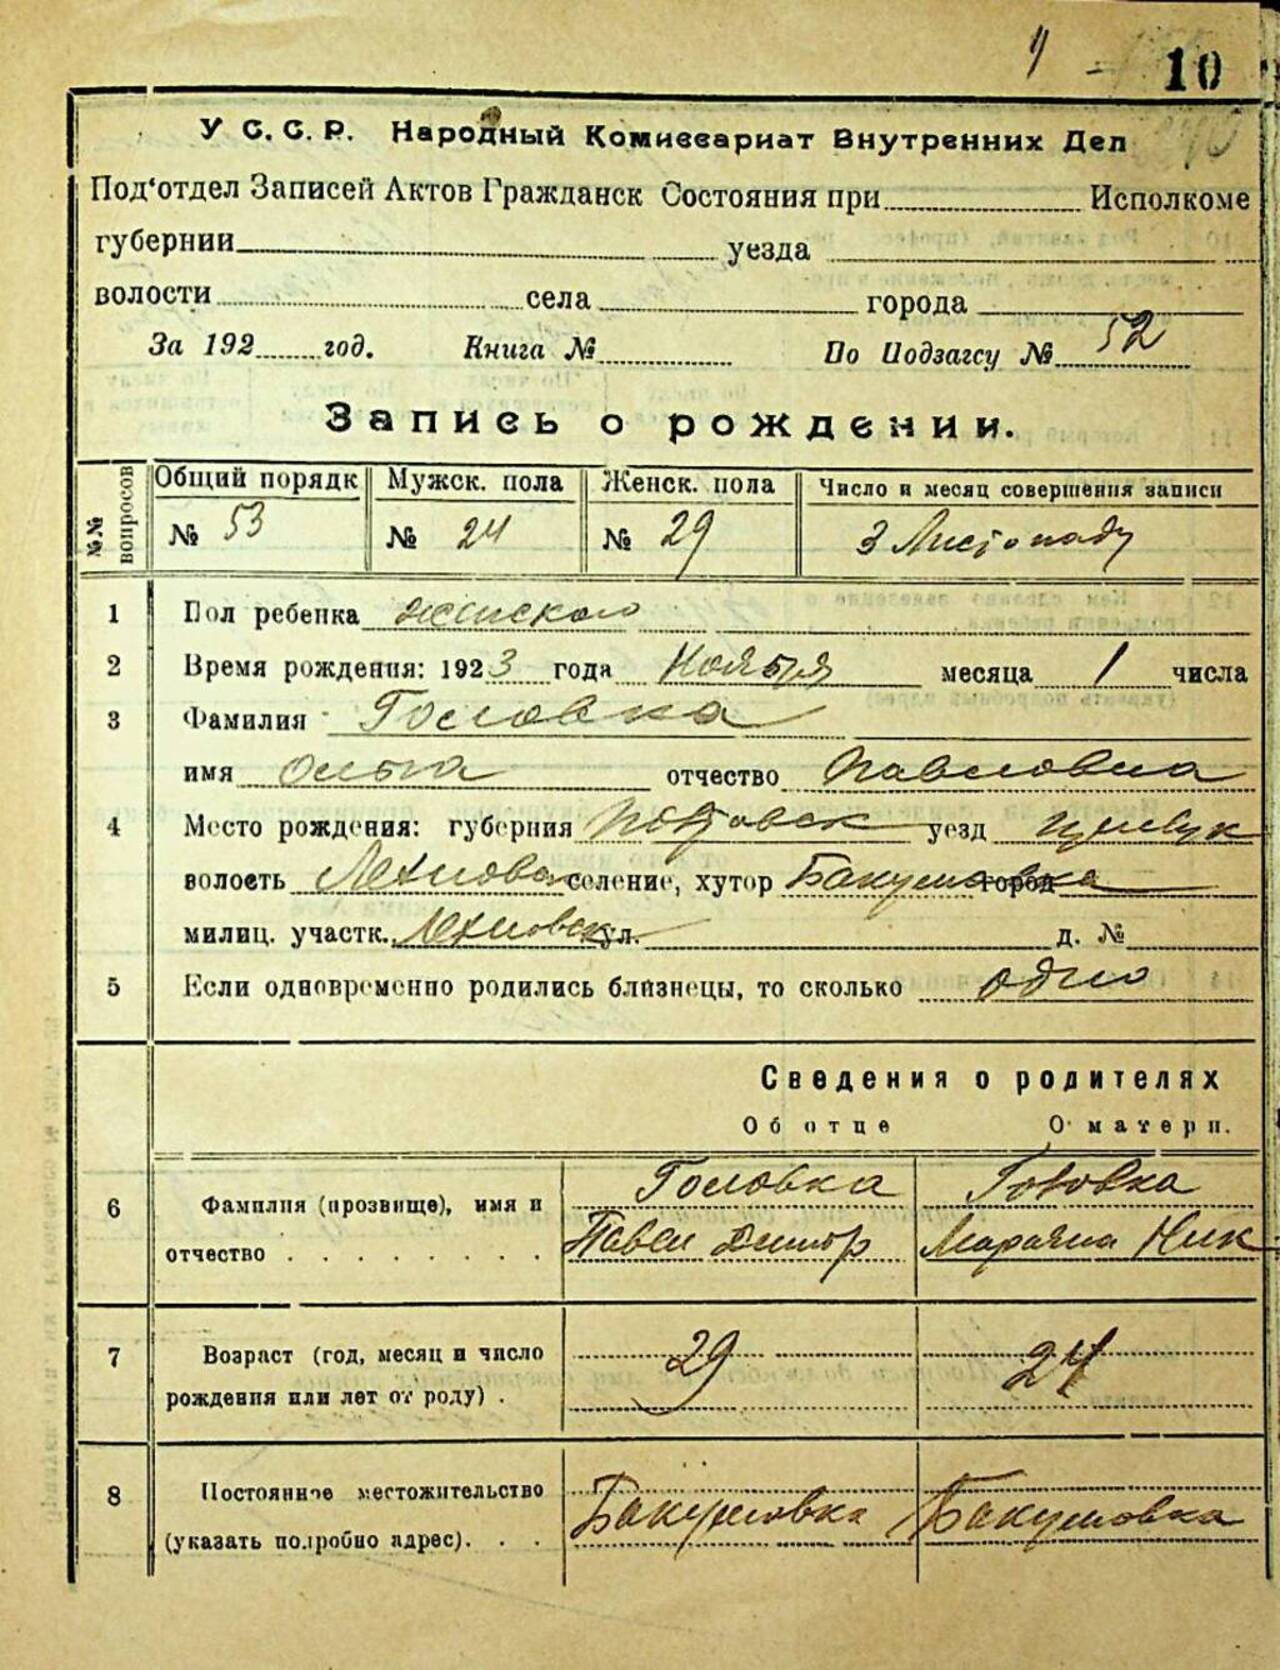 10
У С. С. Р. Народный Комиссариат Внутренних Дел
Под‘отдел Записей Актов Гражданск Состояния при Исполкоме
губернии уезда
волости села города
За 192 год. Книга № По Подзагсу № 52
Запись о рождении.
№№ вопросов
Общий порядк Мужск. пола Женск. пола Число и месяц совершения записи
№ 53 № 24 № 29 3 Листопаду
1 Пол ребенка женского
2 Время рождения: 1923 года Ноября месяца 1 числа
3 Фамилия Головка
имя Ольга отчество Павловна
4 Место рождения: губерния уезд
волость Лехновск селение, хутор Бакумовка город
милиц. участк. Лехновск ул. д. №
5 Если одновременно родились близнецы, то сколько одно
Сведения о родителях
Об отце О матери.
6 Фамилия (прозвище), имя и Головка Головка
отчество . . . . . . . . Павел Дмитр Марьяна Ник
7 Возраст (год, месяц и число 29 24
рождения или лет от роду) .
8 Постоянное местожительство
(указать подробно адрес). . . Бакумовка Бакумовка